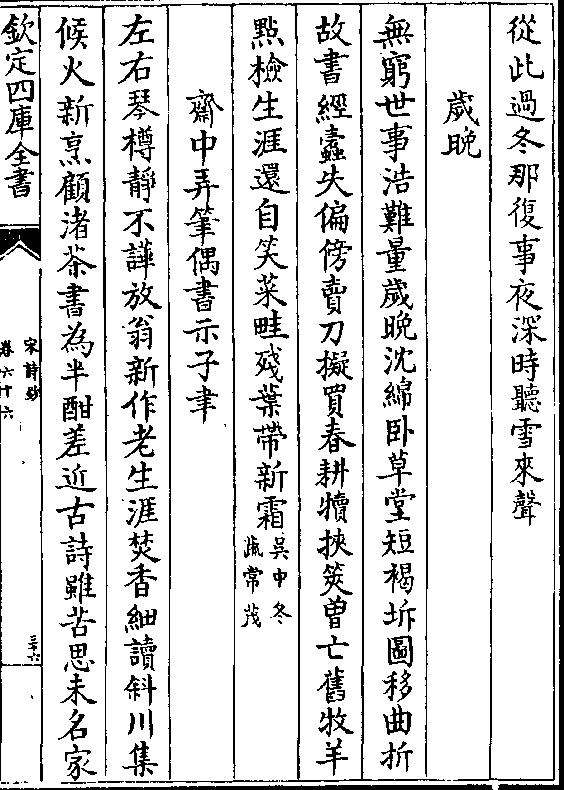 從此過冬那復事夜深時聽雪來聲
歲晚
無窮世事浩難量歲晚沈綿卧草堂短褐坼圖移曲折
故書經蠧失偏傍賣刀擬買春耕犢挾筴曽亡舊牧羊
點檢生涯還自笑菜畦殘葉帶新霜吳中冬
蔬常茂
齋中弄筆偶書示子聿
左右琴樽靜不譁放翁新作老生涯焚香細讀斜川集
候火新烹顧渚茶書為半酣差近古詩雖苦思未名家
欽定四庫全書
宋詩鈔
卷六十六
三十六